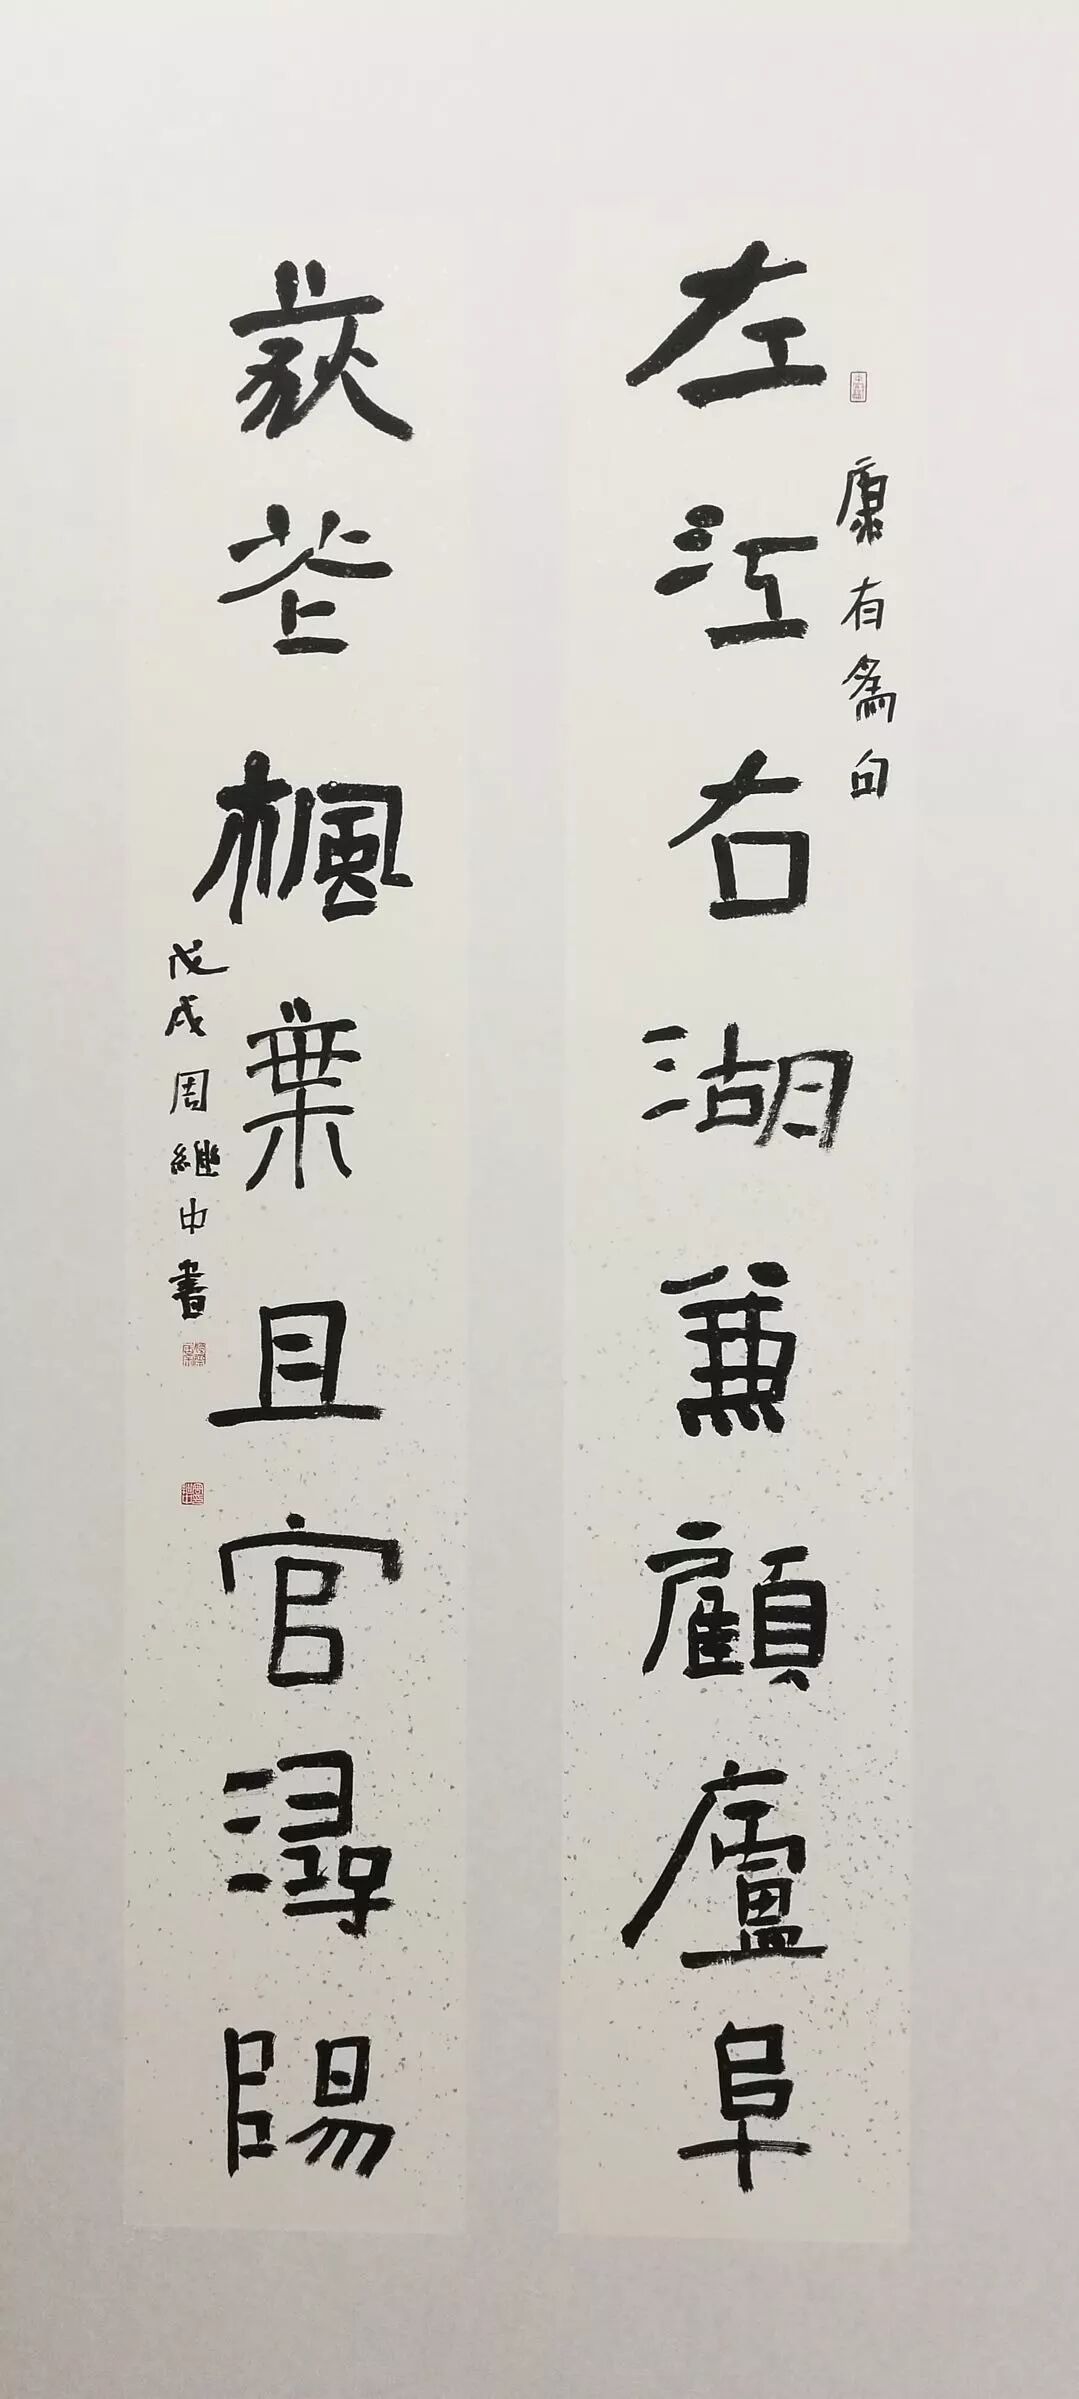 康有為句
左江右湖兼顧廬阜
荻花楓葉且官潯陽
戊戌周繼中書